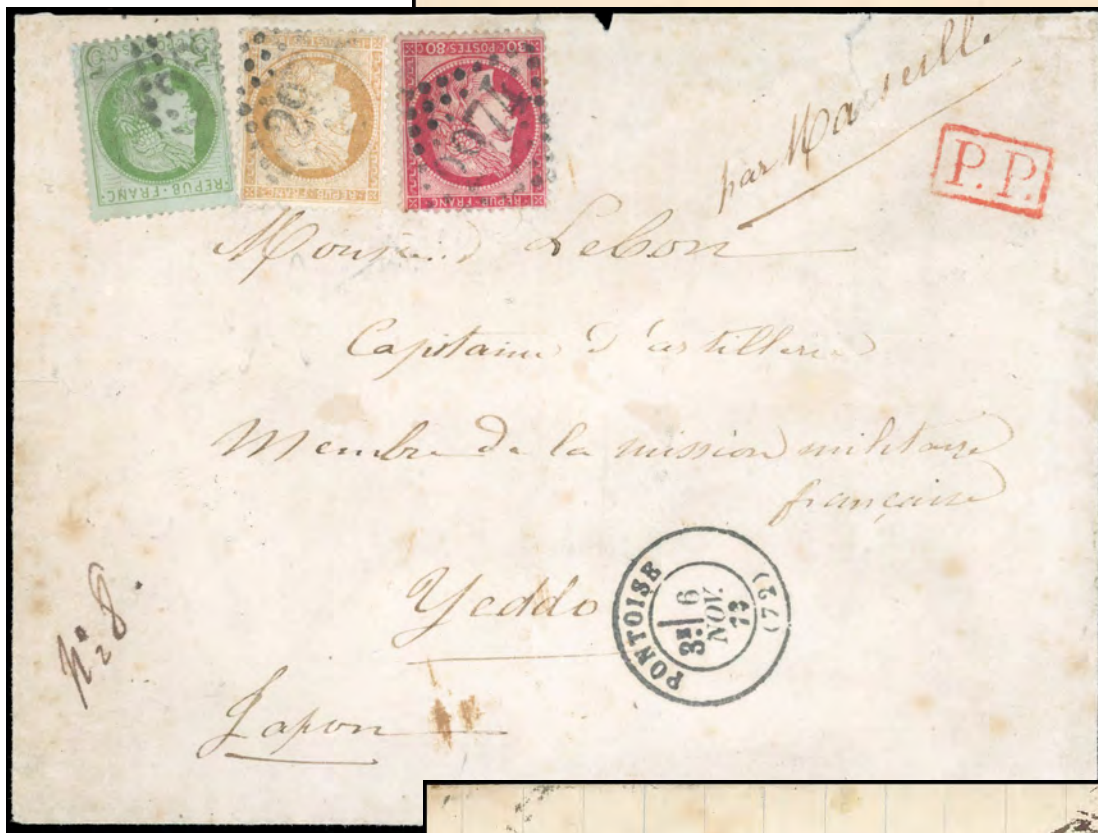 5 C. POSTES 5 C.
REPUB. FRANC.
REPUB. FRANC.
80 C. POSTES 80 C.
REPUB. FRANC.
par Marseille
P.P.
Lebon
Capitaine d'artillerie
Membre de la mission militaire
française
Yeddo
PONTOISE
3E 6
NOV.
(72)
N° 8
Japon